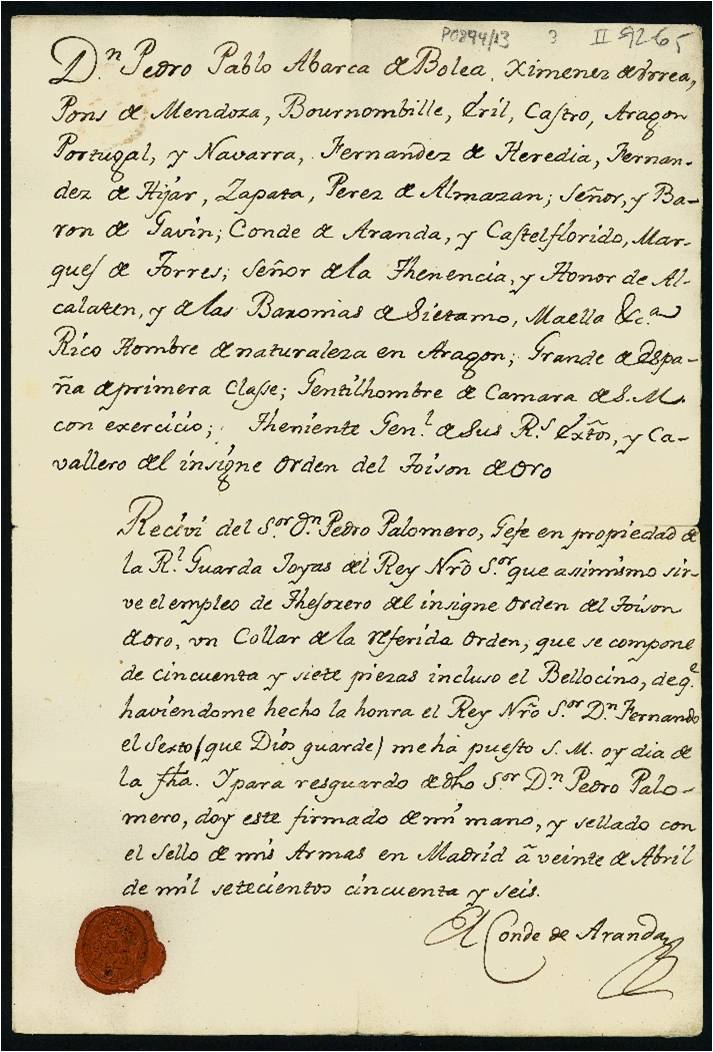 P0894/13 3 II 92-65
D.n Pedro Pablo Abarca de Bolea, Ximenez de Vrrea,
Pons de Mendoza, Bournombille, Eril, Castro, Aragon
Portugal, y Navarra, Fernandez de Heredia, Fernan-
dez de Hijar, Zapata, Perez de Almazan; Señor, y Ba-
ron de Gavin; Conde de Aranda, y Castelflorido, Mar-
ques de Torres; Señor de la Thenencia, y Honor de Al-
calaten, y de las Baronias de Sietamo, Maella &c.a
Rico Hombre de naturaleza en Aragon; Grande de Espa-
ña de primera Classe; Gentilhombre de Camara de S. M.
con exercicio; Theniente Gen.l de Sus R.s Extos, y Ca-
vallero del insigne Orden del Toison de Oro
Recivi del S.or D.n Pedro Palomero, Gefe en propiedad de
la R.l Guarda Joyas del Rey Nro S.or que asimismo sir-
ve el empleo de Thesorero del insigne Orden del Toison
de Oro, vn Collar de la referida Orden, que se compone
de cincuenta y siete piezas incluso el Bellocino, de q.e
haviendome hecho la honra el Rey Nro S.or D.n Fernando
el Sexto (que Dios guarde) me há puesto S. M. oy dia de
la fha. Y para resguardo de dho S.or D.n Pedro Palo-
mero, doy este firmado de mi mano, y sellado con
el sello de mis Armas en Madrid â veinte de Abril
de mil setecientos cincuenta y seis.
El Conde de Aranda